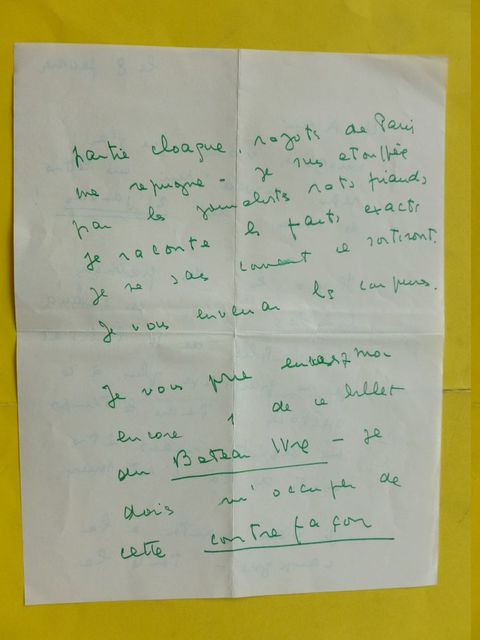 partie cloaque. ragots de Paris
me répugne - je suis étouffée
par les journalistes rats friands
je raconte les faits exacts
je ne sais comment ce sortiront.
Je vous enverrai les coupures.
Je vous prie envoyez moi
encore 1 de ce billet
du Bateau Ivre - je
dois m'occuper de
cette contrefaçon